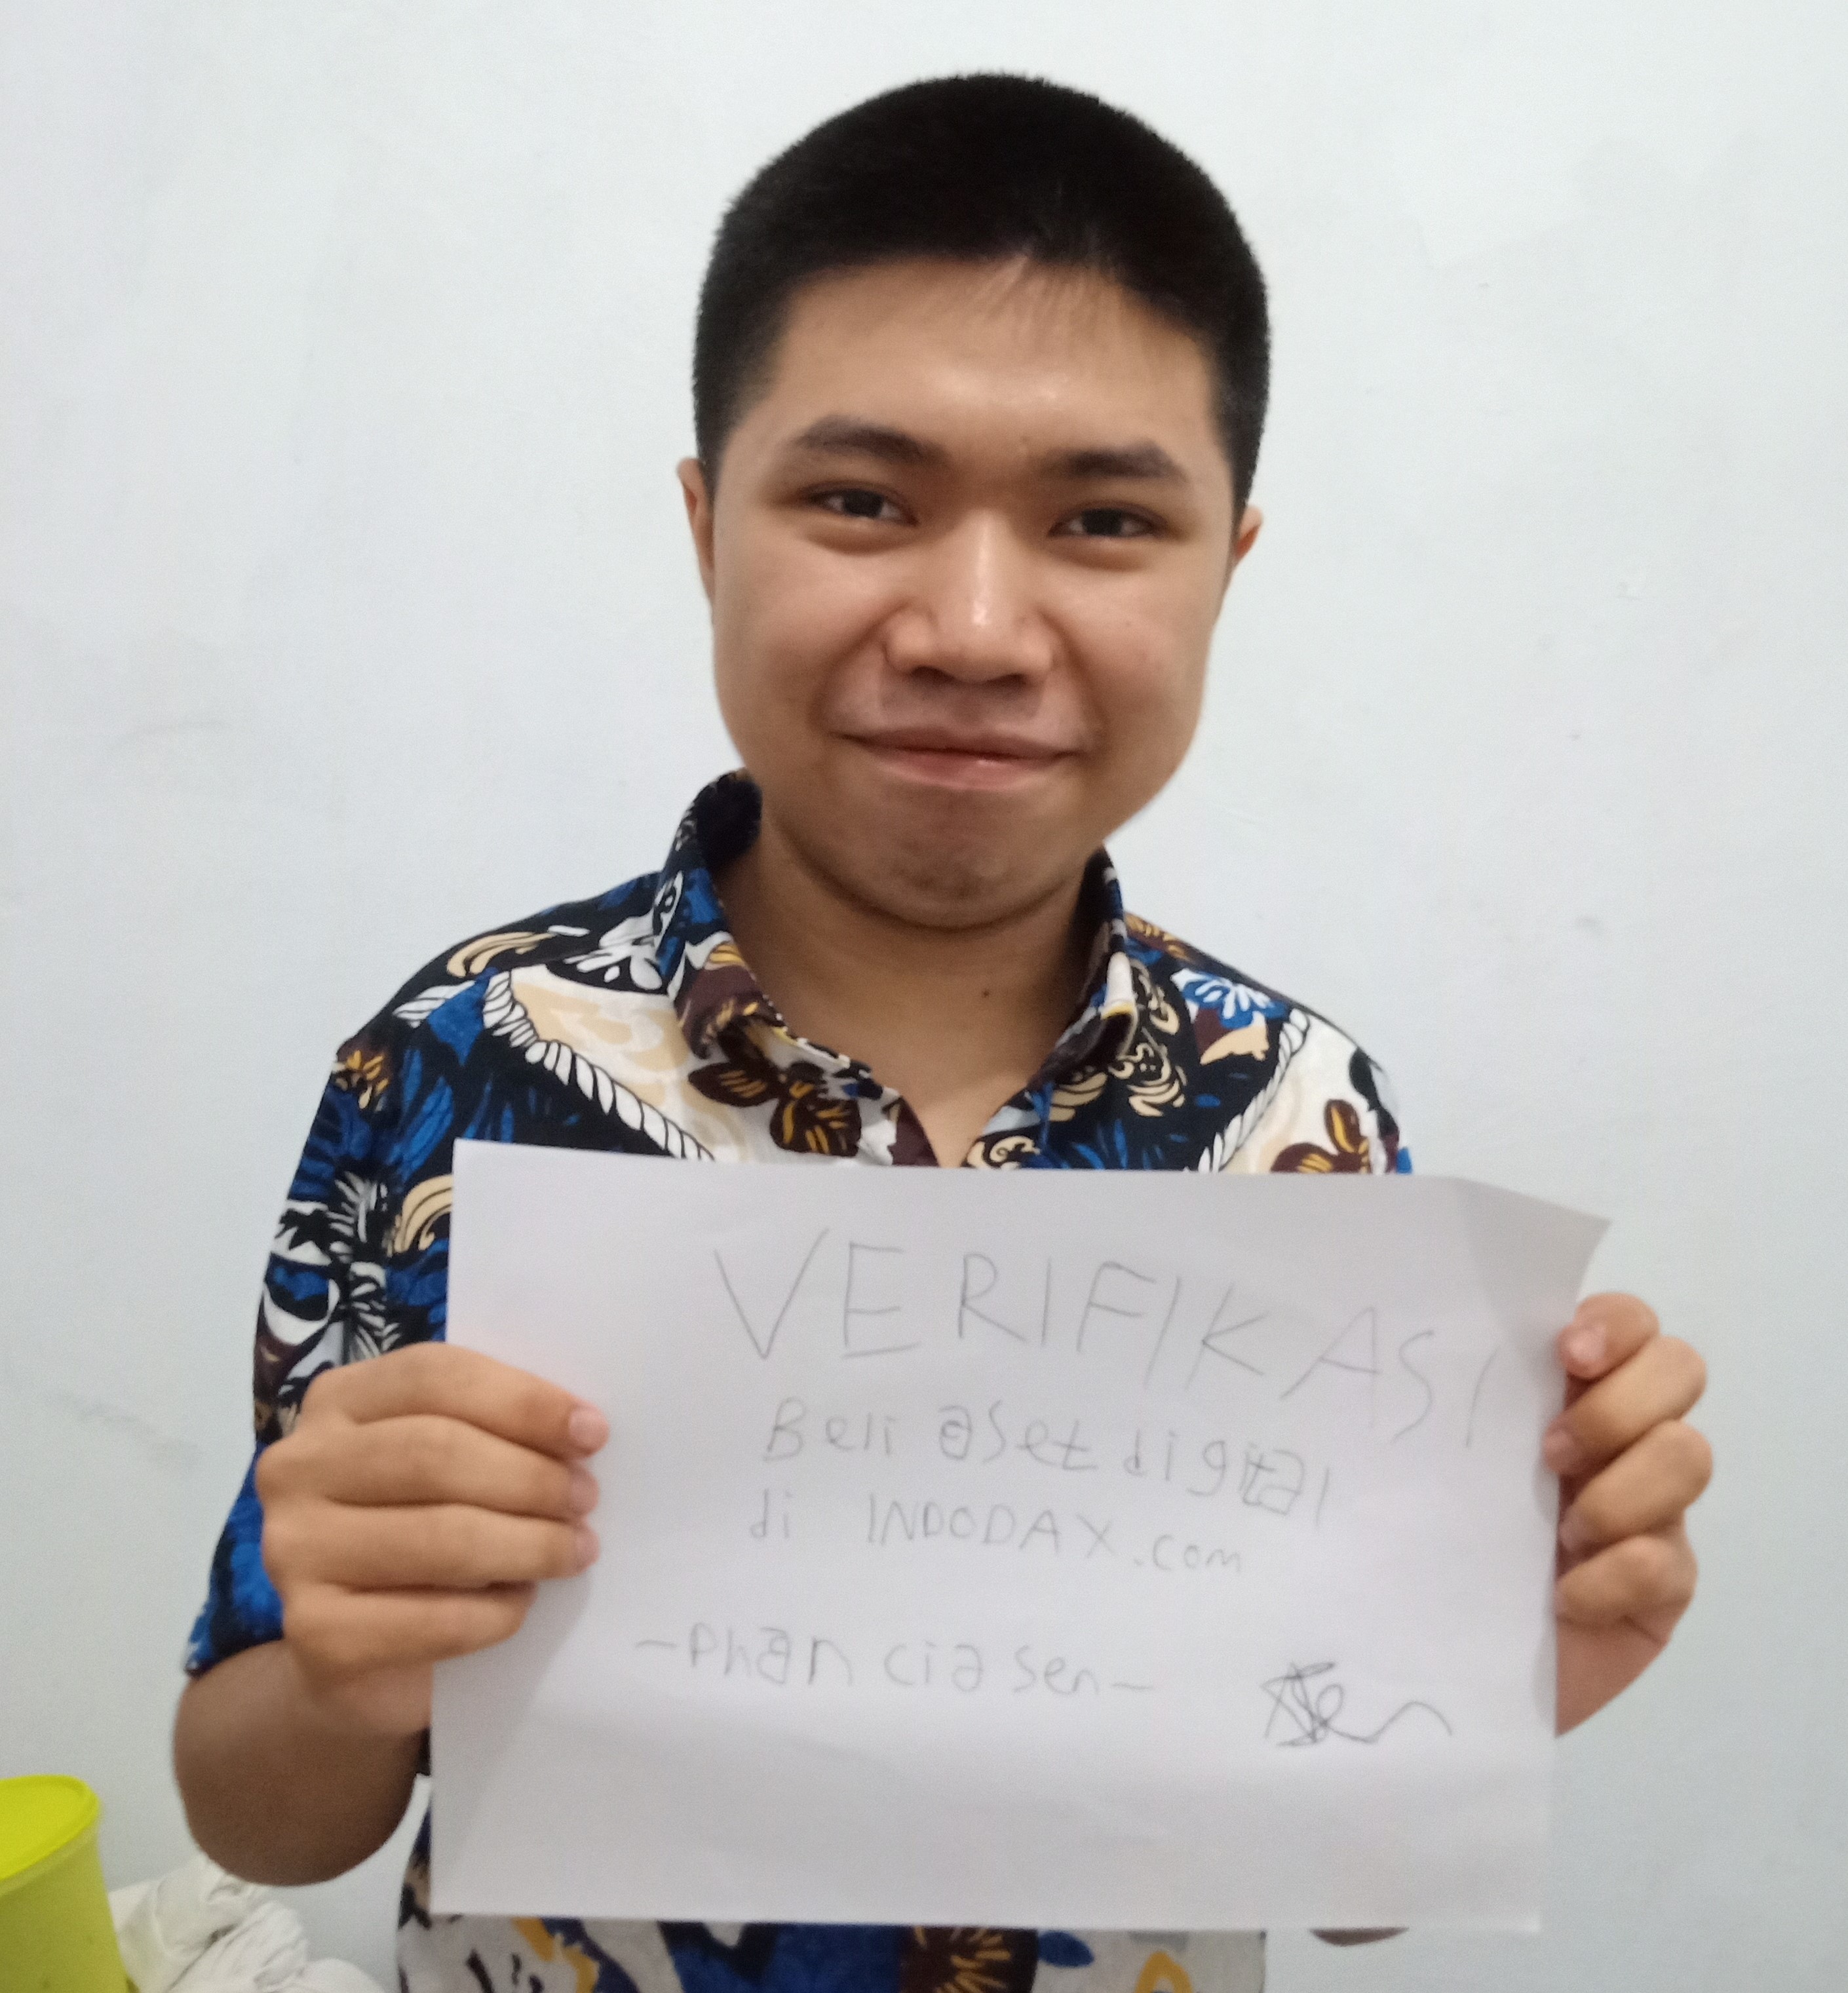 VERIFIKASI
Beli aset digital
di INDODAX.com
-Phan cia sen-